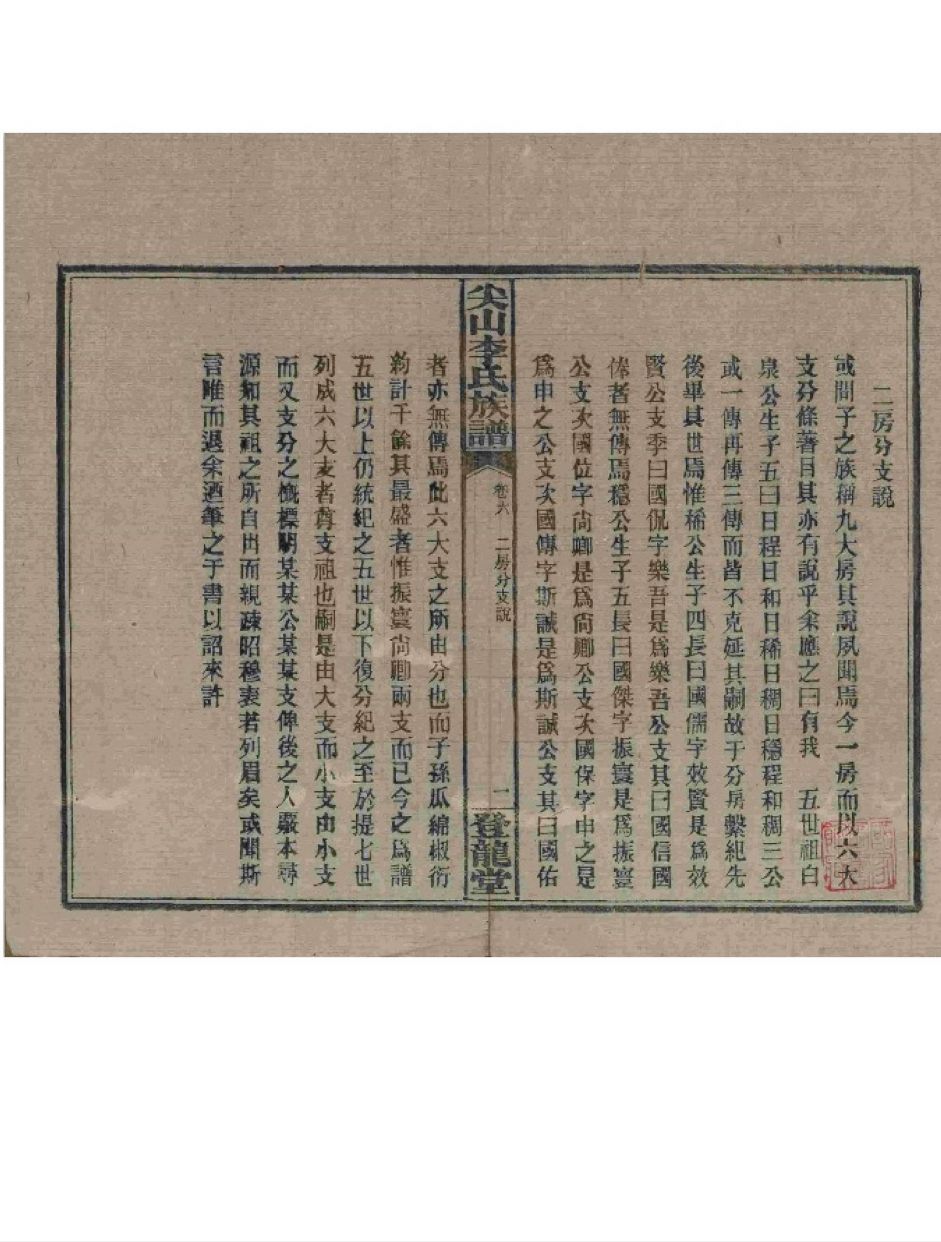 二房分支說
或問子之族稱九大房其說夙聞焉今一房而以六大
支分條著目其亦有說乎余應之曰有我 五世祖白
泉公生子五曰日程日和日稀日稠日穩程和稠三公
或一傳再傳三傳而皆不克延其嗣故于分房繫紀先
後畢其世焉惟稀公生子四長曰國儒字效賢是爲效
賢公支季曰國侃字樂吾是爲樂吾公支其曰國信國
俸者無傳焉穩公生子五長曰國傑字振寰是爲振寰
公支次國位字尙卿是爲尙卿公支次國保字申之是
爲申之公支次國傳字斯誠是爲斯誠公支其曰國佑
尖山李氏族譜
卷六 二房分支說
二
登龍堂
者亦無傳焉此六大支之所由分也而子孫瓜綿椒衍
約計千餘其最盛者惟振寰尙卿兩支而已今之爲譜
五世以上仍統紀之五世以下復分紀之至於提七世
列成六大支者尊支祖也嗣是由大支而小支由小支
而又支分之槪標明某某公某某支俾後之人嚴本尋
源知其祖之所自出而親疎昭穆衷若列眉矣或聞斯
言唯而退余迺筆之于書以詔來許